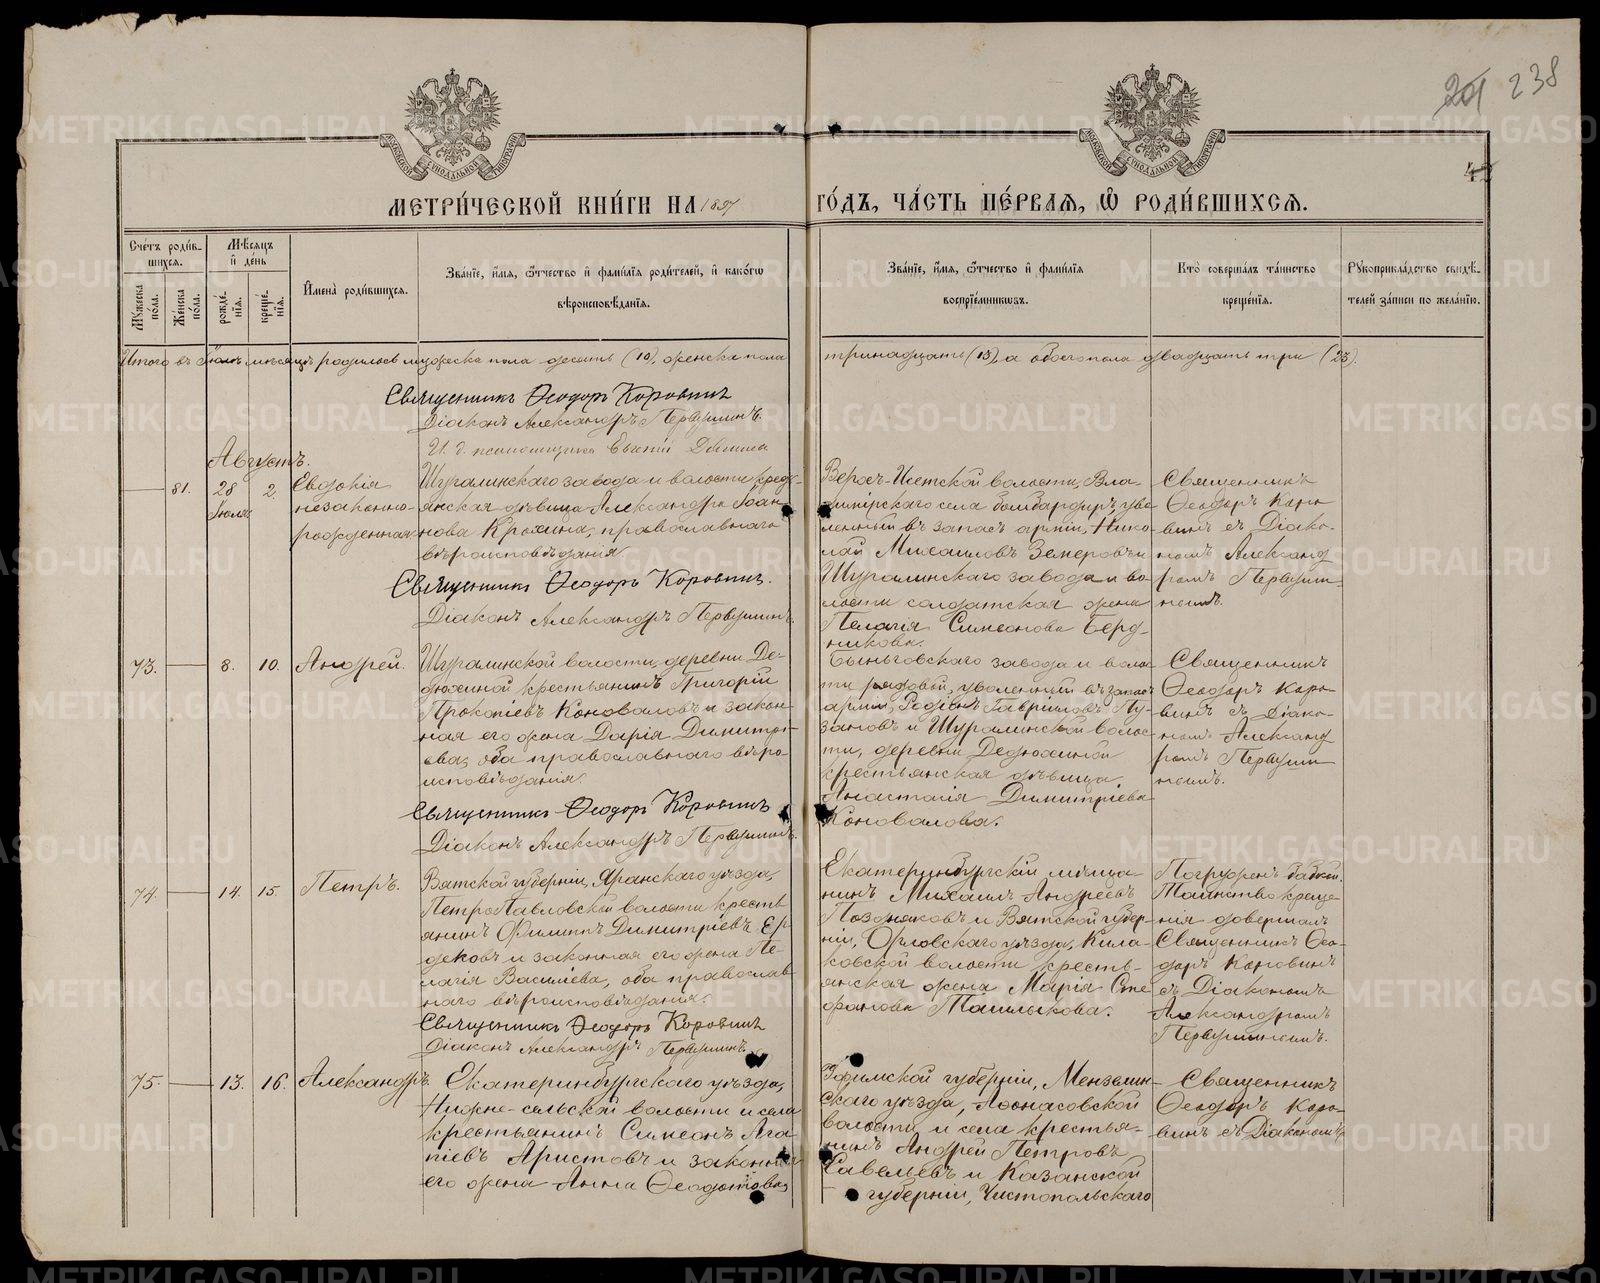 201 238
42
МЕТРИ́ЧЕСКОЙ КНИ́ГИ НА 1897 ГО́ДЪ, ЧА́СТЬ ПЕ́РВАЯ, Ѡ РОДИ́ВШИХСЯ.
Сче́тъ роди́вшихся.
Мѣ́сяцъ и де́нь
Мꙋ́жеска по́ла.
Же́нска по́ла.
рожде́нїя.
креще́нїя.
И҆мена̀ роди́вшихся.
Зва́нїе, и҆́мя, ѻ҆́тчество и҆ фами́лїя роди́телей, и҆ како́гѡ
вѣроисповѣ́данїя.
Зва́нїе, и҆́мя, ѻ҆́тчество и҆ фами́лїя
воспрїе́мникѡвъ.
Кто̀ соверша́лъ та́инство
креще́нїя.
Рꙋкоприкла́дство свидѣ́-
телей за́писи по жела́нїю.
Итого въ Іюлѣ мѣсяцѣ родилось мужеска пола десять (10), женска пола тринадцать (13), а обоего пола двадцать три (23).
Священникъ Ѳеодоръ Коровинъ
Діаконъ Александръ Первушинъ.
И. д. псаломщика
Августъ.
81. 28 Іюля 2. Евдокія
незаконно-
рожденная
Шуралинскаго завода и волости кресть-
янская дѣвица Александра Іоан-
нова Крохина, православнаго
вѣроисповѣданія
Священникъ Ѳеодоръ Коровинъ.
Діаконъ Александръ Первушинъ.
Верхъ-Исетской волости, Вла-
димірскаго села бомбардиръ, уво-
ленный въ запасъ арміи, Нико-
лай Михаиловъ Земеровъ и
Шуралинскаго завода и во-
лости солдатская жена
Пелагія Симеонова Берд-
никова.
Священникъ
Ѳеодоръ Коро-
винъ съ Діако-
номъ Александ-
ромъ Первуши-
нымъ.
73. 8. 10. Андрей.
Шуралинской волости, деревни Де-
дюхиной крестьянинъ Григорій
Прокопіевъ Коноваловъ и закон-
ная его жена Дарія Димитрі-
ева, оба православнаго вѣро-
исповѣданія.
Священникъ Ѳеодоръ Коровинъ
Діаконъ Александръ Первушинъ.
Быньговскаго завода и воло-
сти рядовой, уволенный въ запасъ
арміи, Родіонъ Гавриловъ Лу-
зановъ и Шуралинской волос-
ти, деревни Дедюхиной
крестьянская дѣвица
Анастасія Димитріева
Коновалова.
Священникъ
Ѳеодоръ Коро-
винъ съ Діако-
номъ Александ-
ромъ Первуши-
нымъ.
74. 14. 15. Петръ.
Вятской губерніи, Яранскаго уѣзда,
ПетроПавловской волости кресть-
янинъ Филиппъ Димитріевъ Ер-
дековъ и законная его жена Пе-
лагія Василіева, оба православ-
наго вѣроисповѣданія.
Священникъ Ѳеодоръ Коровинъ
Діаконъ Александръ Первушинъ.
Екатеринбургскій мѣща-
нинъ Михаилъ Андреевъ
Поздняковъ и Вятской губер-
ніи, Орловскаго уѣзда, Кила-
ковской волости кресть-
янская жена Марія Сте-
фанова Ташлыкова.
Погруженъ бабкой.
Таинство креще-
нія довершалъ
Священникъ Ѳео-
доръ Коровинъ
съ Діакономъ
Александромъ
Первушинымъ.
75. 13. 16. Александръ.
Екатеринбургскаго уѣзда,
Нижне-сельской волости и села
крестьянинъ Симеонъ Ага-
піевъ Аристовъ и законная
его жена Анна Ѳеодотова,
Уфимской губерніи, Мензелин-
скаго уѣзда, Аѳонасовской
волости и села крестья-
нинъ Андрей Петровъ
Савельевъ и Казанской
губерніи, Чистопольскаго
Священникъ
Ѳеодоръ Коро-
винъ съ Діакономъ
METRIKI.GASO-URAL.RU